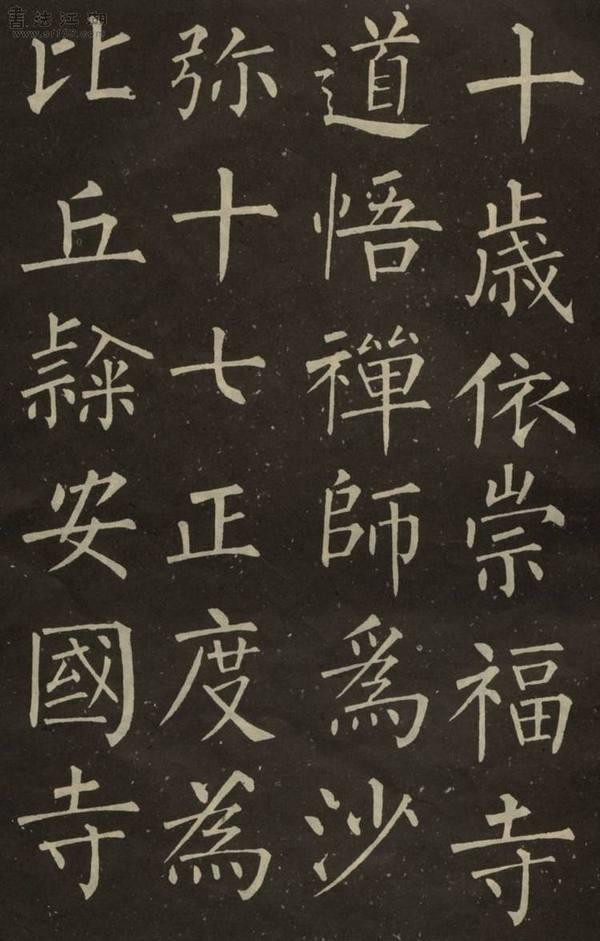 十歳依崇福寺
道悟禪師爲沙
弥十七正度為
比丘𨽻安國寺
書法江湖
www.sf115.com